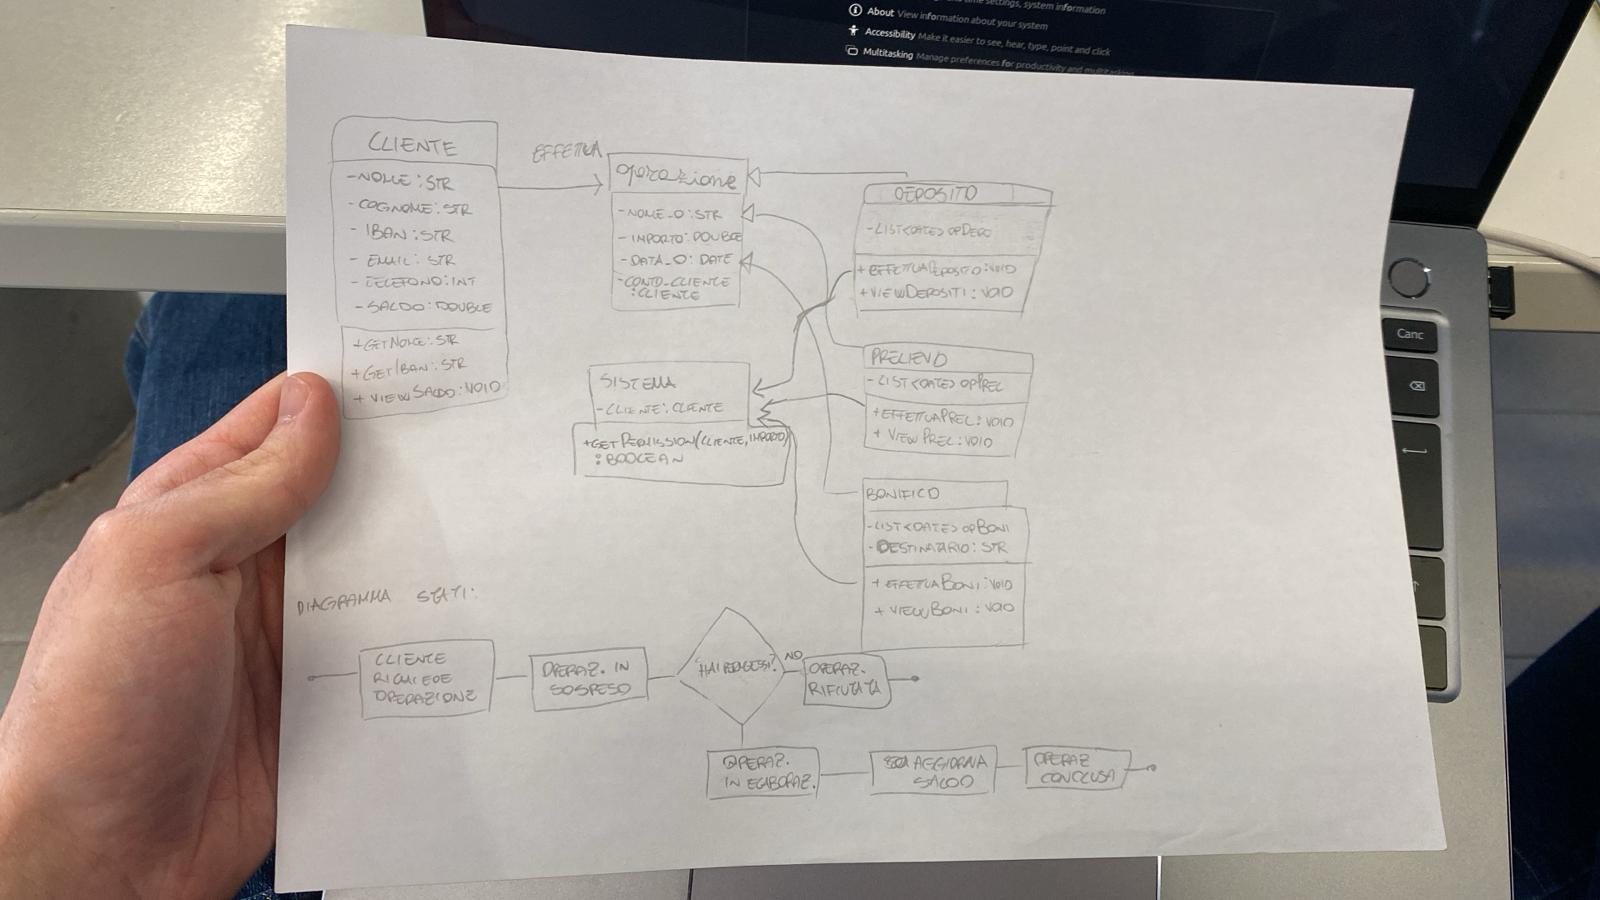 About View information about your system
Accessibility Make it easier to see, hear, type, point and click
Multitasking Manage preferences for productivity and multitasking
CLIENTE
-NOME:STR
-COGNOME:STR
-IBAN:STR
-EMAIL:STR
-TELEFONO:INT
-SALDO:DOUBLE
+GETNOME:STR
+GETIBAN:STR
+VIEWSALDO:VOID
EFFETTUA
OPERAZIONE
-NOME_O:STR
-IMPORTO:DOUBLE
-DATA_O:DATE
-CONTO_CLIENTE
:CLIENTE
DEPOSITO
-LIST<DATE> OPDEPO
+EFFETTUADEPOSITO:VOID
+VIEWDEPOSITI:VOID
SISTEMA
-CLIENTE:CLIENTE
+GETPERMISSION(CLIENTE,IMPORTO)
:BOOLEAN
PRELIEVO
-LIST<DATE> OPPREL
+EFFETTUAPREL:VOID
+VIEWPREL:VOID
BONIFICO
-LIST<DATE> OPBONI
-DESTINATARIO:STR
+EFFETUABONI:VOID
+VIEWBONI:VOID
DIAGRAMMA STATI:
CLIENTE
RICHIEDE
OPERAZIONE
OPERAZ. IN
SOSPESO
HAI PERMESSI?
NO
OPERAZ.
RIFIUTATA
OPERAZ.
IN ELABORAZ.
AGGIORNA
SALDO
OPERAZ
CONCLUSA
Canc